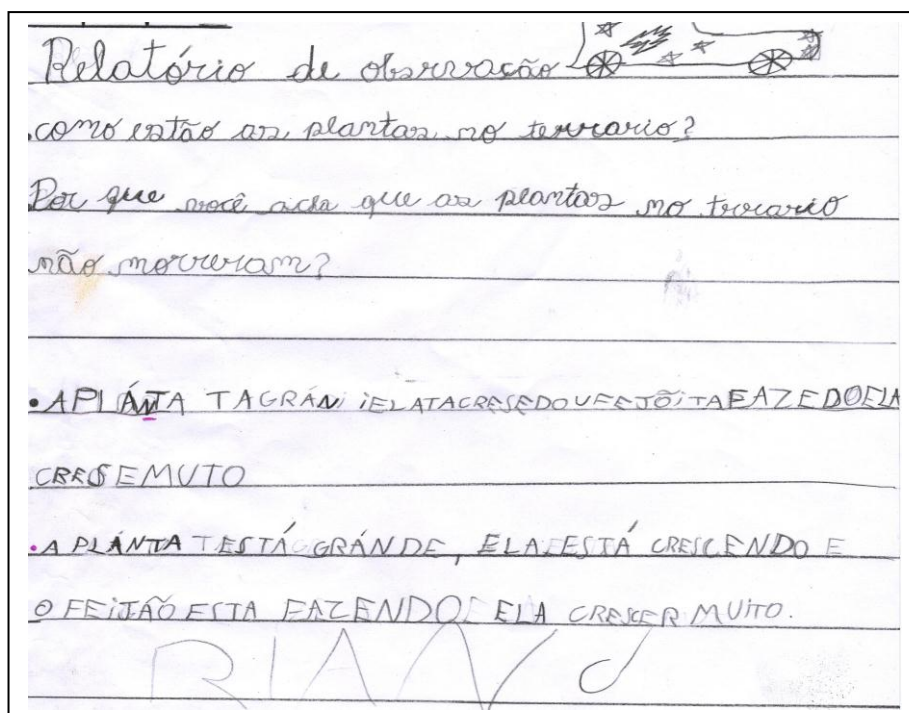 Relatório de observação
como estão as plantas no terrario?
Por que você acha que as plantas no terrario
não morreram?
• A PLÁNTA TAGRÁNI IELATACRESEDOUFEJÕITAFAZEDOELA
CRESEMUTO
• A PLÁNTA TESTÁ GRÁNDE, ELA ESTÁ CRESCENDO E
O FEIJÃO ESTA FAZENDO ELA CRESCER MUITO.
RIAN